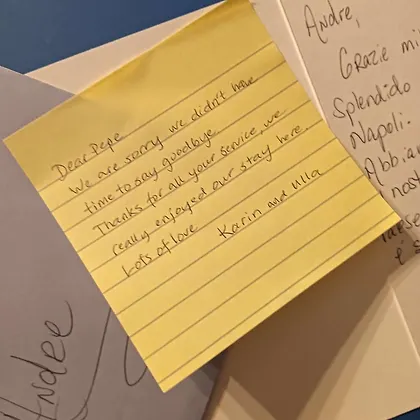 Dear Pepe
We are sorry we didn't have
time to say goodbye.
Thanks for all your service, we
really enjoyed our stay here.
Lots of love
Karin and Ulla
Andre,
Grazie
Splendido
Napoli.
è
Andee